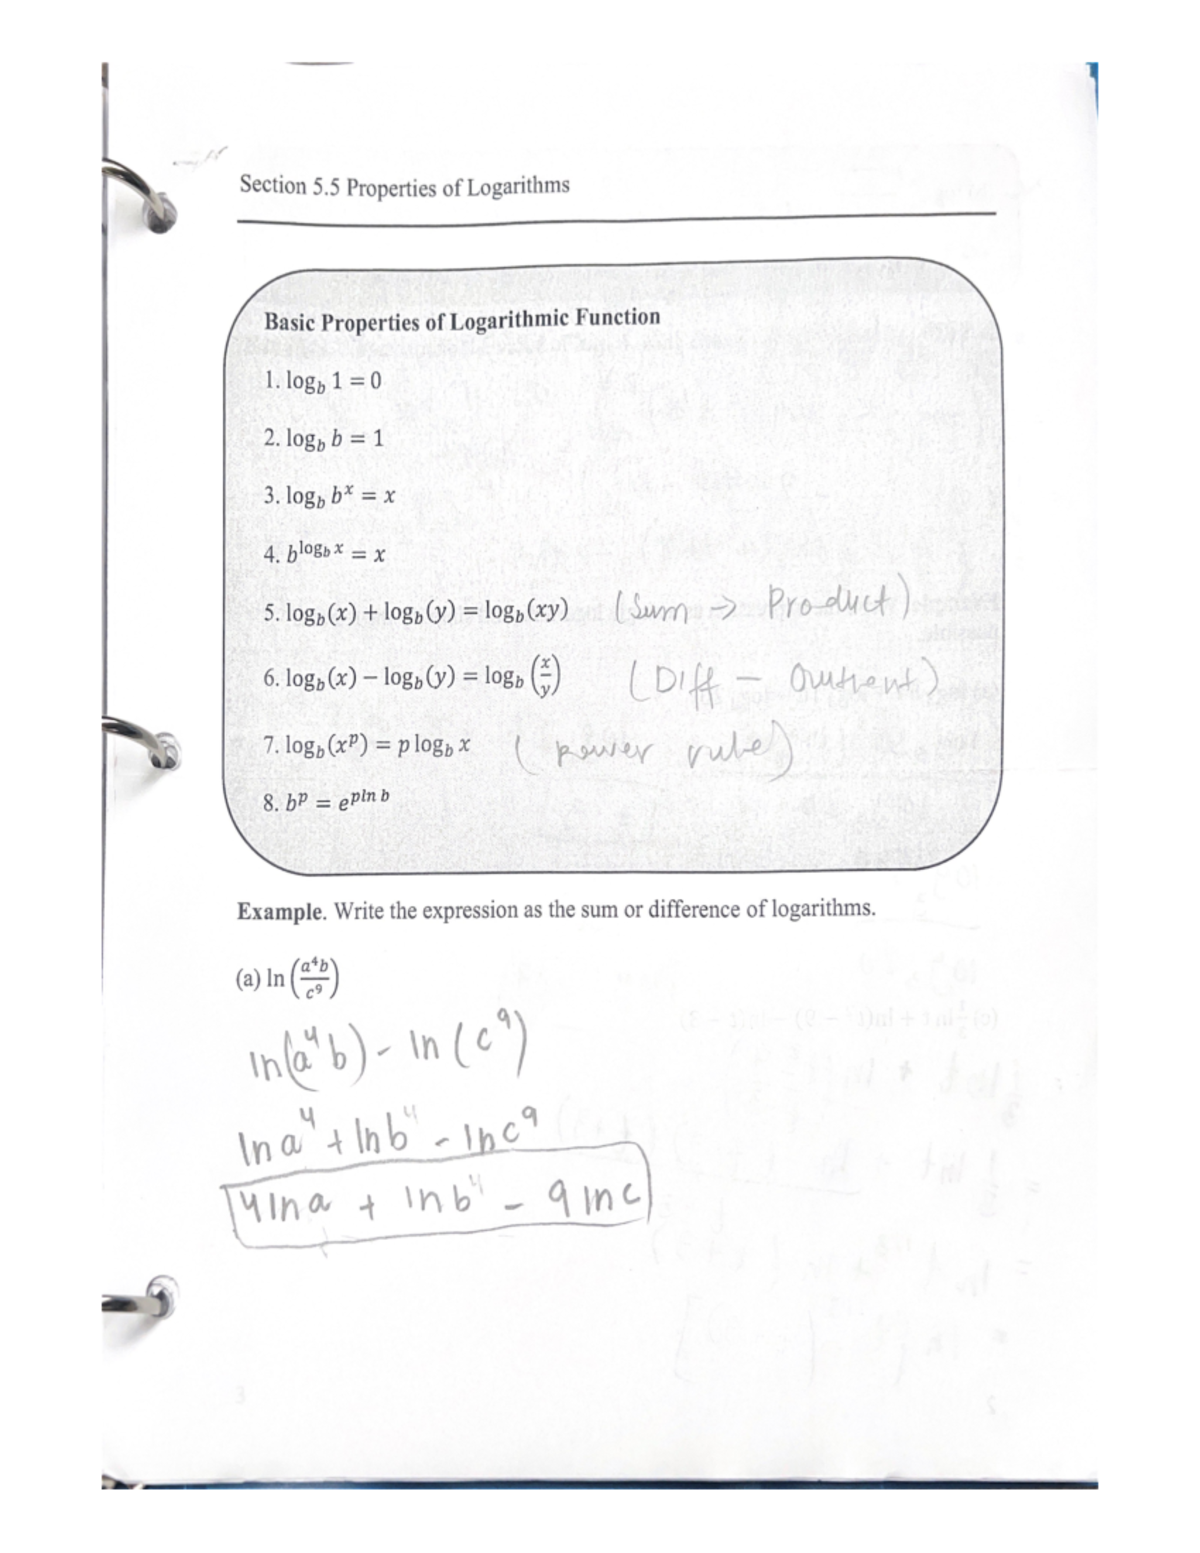 Section 5.5 Properties of Logarithms
Basic Properties of Logarithmic Function
1. log_b 1 = 0
2. log_b b = 1
3. log_b b^x = x
4. b^(log_b x) = x
5. log_b(x) + log_b(y) = log_b(xy) (Sum → Product)
6. log_b(x) − log_b(y) = log_b(x/y) (Diff −
7. log_b(x^p) = p log_b x (power rule)
8. b^p = e^(pln b)
Example. Write the expression as the sum or difference of logarithms.
(a) ln(a^4b/c^9)
ln(a^4 b) - ln(c^9)
ln a^4 + ln b^4 - ln c^9
4 ln a + ln b^4 - 9 ln c